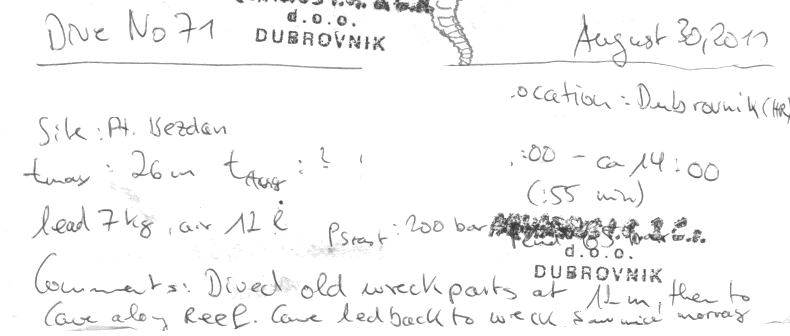 Dive No 71
d.o.o.
DUBROVNIK
August 30, 2011
Location : Dubrovnik (HR)
Site : Pt. Vezdan
tmax : 26m tAvg : ?
:00 - ca 14:00
(:55 min)
lead 7kg, air 12 l
pstart : 200 bar
d.o.o.
DUBROVNIK
Comments: Dived old wreckparts at 12m, then to
Cave along Reef. Cave led back to wreck. Saw nice morray